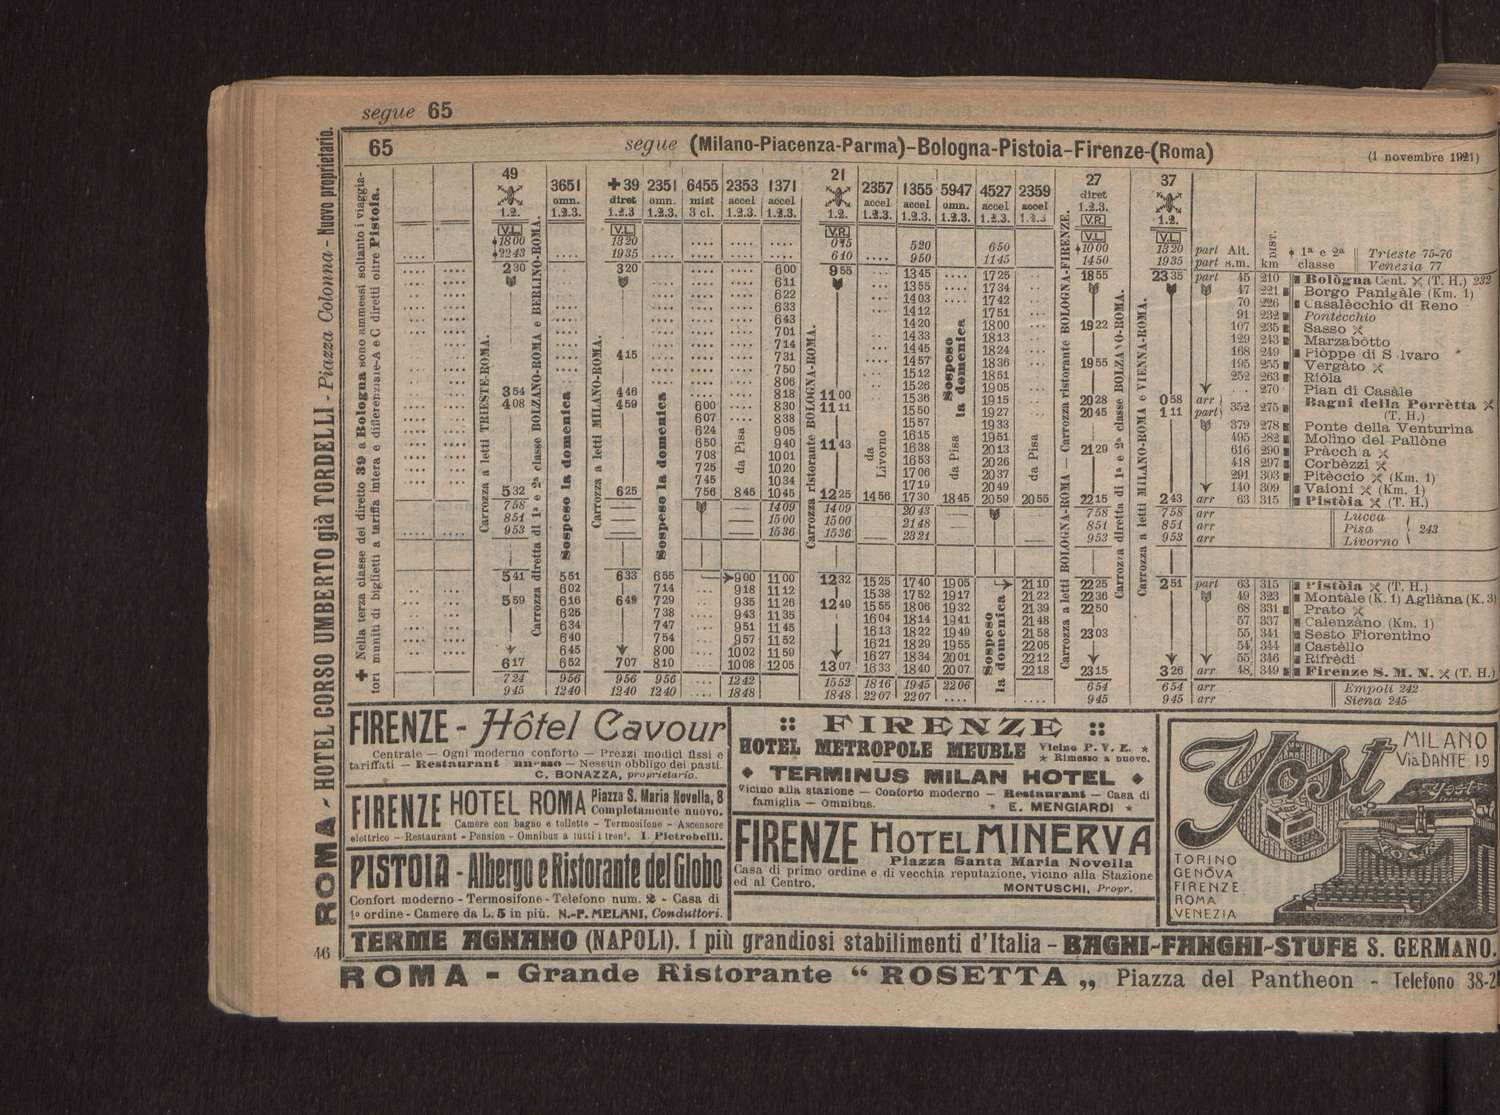 segue 65
65 segue (Milano-Piacenza-Parma)-Bologna-Pistoia-Firenze-(Roma) (1 novembre 1921)
ROMA - HOTEL CORSO UMBERTO già TORDELLI - Piazza Colonna - Nuovo proprietario.
✚ Nella terza classe del diretto 39 a Bologna sono ammessi soltanto i viaggia-
tori muniti di biglietti a tariffa intera e differenziale A e C diretti oltre Pistoia.
49 3651 ✚ 39 2351 6455 2353 1371 21 2357 1355 5947 4527 2359 27 37
omn. diret omn. mist accel accel accel accel omn. accel accel diret
1.2. 1.2.3. 1.2.3 1.2.3. 3 cl. 1.2.3. 1.2.3. 1.2. 1.2.3. 1.2.3. 1.2.3. 1.2.3. 1.2.3 1.2.3. 1.2.
V.L. V.L. V.R. V.R. V.L. V.L.
1800 1320 015 520 650 1000 1320 part Alt. DIST. 1ª e 2ª Trieste 75-76
2243 1935 610 950 1145 1450 1935 part s.m. km classe Venezia 77
230 320 600 955 1345 1725 1855 2335 part 45 210 Bológna Cent. (T. H.) 232
611 1355 1734 47 221 Borgo Panigàle (Km. 1)
622 1403 1742 70 226 Casalècchio di Reno
633 1412 1751 91 232 Pontècchio
643 1420 1800 1922 107 235 Sasso
701 1433 1813 129 243 Marzabòtto
415 714 1445 1824 168 249 Piòppe di Salvaro
731 1457 1836 1955 195 255 Vergàto
750 1512 1851 252 263 Riòla
806 1526 1905 270 Pian di Casàle
354 446 818 1100 1536 1915 2028 058 arr
408 459 600 830 1111 1550 1927 2045 111 part 352 275 Bagni della Porrètta (T. H.)
607 838 1557 1933 379 278 Ponte della Venturina
624 905 1615 1951 495 282 Molino del Pallòne
650 940 1143 1638 2013 2129 616 290 Pràcchia
708 1001 1653 2026 418 297 Corbèzzi
725 1020 1706 2037 291 303 Pitèccio (Km. 1)
745 1034 1719 2049 140 309 Vaioni (Km. 1)
532 625 756 845 1045 1225 1456 1730 1845 2059 2055 2215 243 arr 63 315 Pistòia (T. H.)
758 1409 1409 2043 758 758 arr Lucca
851 1500 1500 2148 851 851 arr Pisa 243
953 1536 1536 2321 953 953 arr Livorno
541 551 633 655 900 1100 1232 1525 1740 1905 2110 2225 251 part 63 315 Pistòia (T. H.)
602 714 918 1112 1538 1752 1917 2122 2236 49 323 Montàle (K. 1) Agliàna (K. 3)
559 616 649 729 935 1126 1249 1555 1806 1932 2139 2250 68 331 Prato
625 738 943 1135 1604 1814 1941 2148 57 337 Calenzàno (Km. 1)
634 747 951 1145 1613 1822 1949 2158 2303 55 341 Sesto Fiorentino
640 754 957 1152 1621 1829 1955 2205 54 344 Castèllo
645 800 1002 1159 1627 1834 2001 2212 55 346 Rifrèdi
617 652 707 810 1008 1205 1307 1633 1840 2007 2218 2315 326 arr 48 349 Firenze S. M. N. (T. H.)
724 956 956 956 1242 1552 1816 1945 2206 654 654 arr Empoli 242
945 1240 1240 1240 1848 1848 2207 2207 945 945 arr Siena 245
Carrozza a letti TRIESTE-ROMA.
Carrozza diretta di 1ª e 2ª classe BOLZANO-ROMA e BERLINO-ROMA.
Sospeso la domenica
Carrozza a letti MILANO-ROMA.
Sospeso la domenica
da Pisa
Carrozza ristorante BOLOGNA-ROMA.
da Livorno
Sospeso la domenica
da Pisa
Sospeso la domenica
da Pisa
Carrozza a letti BOLOGNA-ROMA — Carrozza ristorante BOLOGNA-FIRENZE.
Carrozza diretta di 1ª e 2ª classe BOLZANO-ROMA.
Carrozza a letti MILANO-ROMA e VIENNA-ROMA.
FIRENZE - Hôtel Cavour
Centrale — Ogni moderno conforto — Prezzi modici fissi e
tariffati — Restaurant annesso — Nessun obbligo dei pasti.
C. BONAZZA, proprietario.
FIRENZE HOTEL ROMA Piazza S. Maria Novella, 8
Completamente nuovo.
Camere con bagno e toilette - Termosifone - Ascensore
elettrico - Restaurant - Pension - Omnibus a tutti i treni. I. Pietrobelli.
PISTOIA - Albergo e Ristorante del Globo
Confort moderno - Termosifone - Telefono num. 2 - Casa di
1º ordine - Camere da L. 5 in più. N.-P. MELANI, Conduttori.
:: FIRENZE ::
HOTEL METROPOLE MEUBLE Vicino P. V. E.
Rimesso a nuovo.
TERMINUS MILAN HOTEL
Vicino alla stazione — Conforto moderno — Restaurant — Casa di
famiglia — Omnibus. E. MENGIARDI
FIRENZE HOTEL MINERVA
Piazza Santa Maria Novella
Casa di primo ordine e di vecchia reputazione, vicino alla Stazione
ed al Centro. MONTUSCHI, Propr.
Yost
MILANO
Via DANTE 19
TORINO
GENOVA
FIRENZE
ROMA
VENEZIA
TERME AGNANO (NAPOLI). I più grandiosi stabilimenti d'Italia - BAGNI-FANGHI-STUFE S. GERMANO.
46
ROMA - Grande Ristorante “ ROSETTA „ Piazza del Pantheon - Telefono 38-2